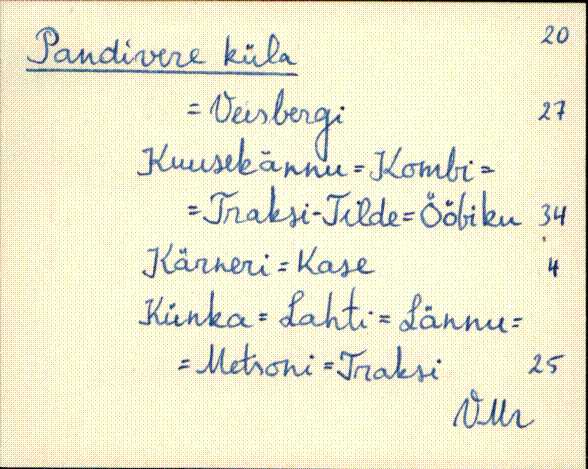 Pandivere küla 20
= Veisbergi 27
Kuusekännu = Kombi =
= Traksi-Tilde = Ööbiku 34
Kärneri = Kase 4
Künka = Lahti = Lännu =
= Metsoni = Traksi 25
VMr